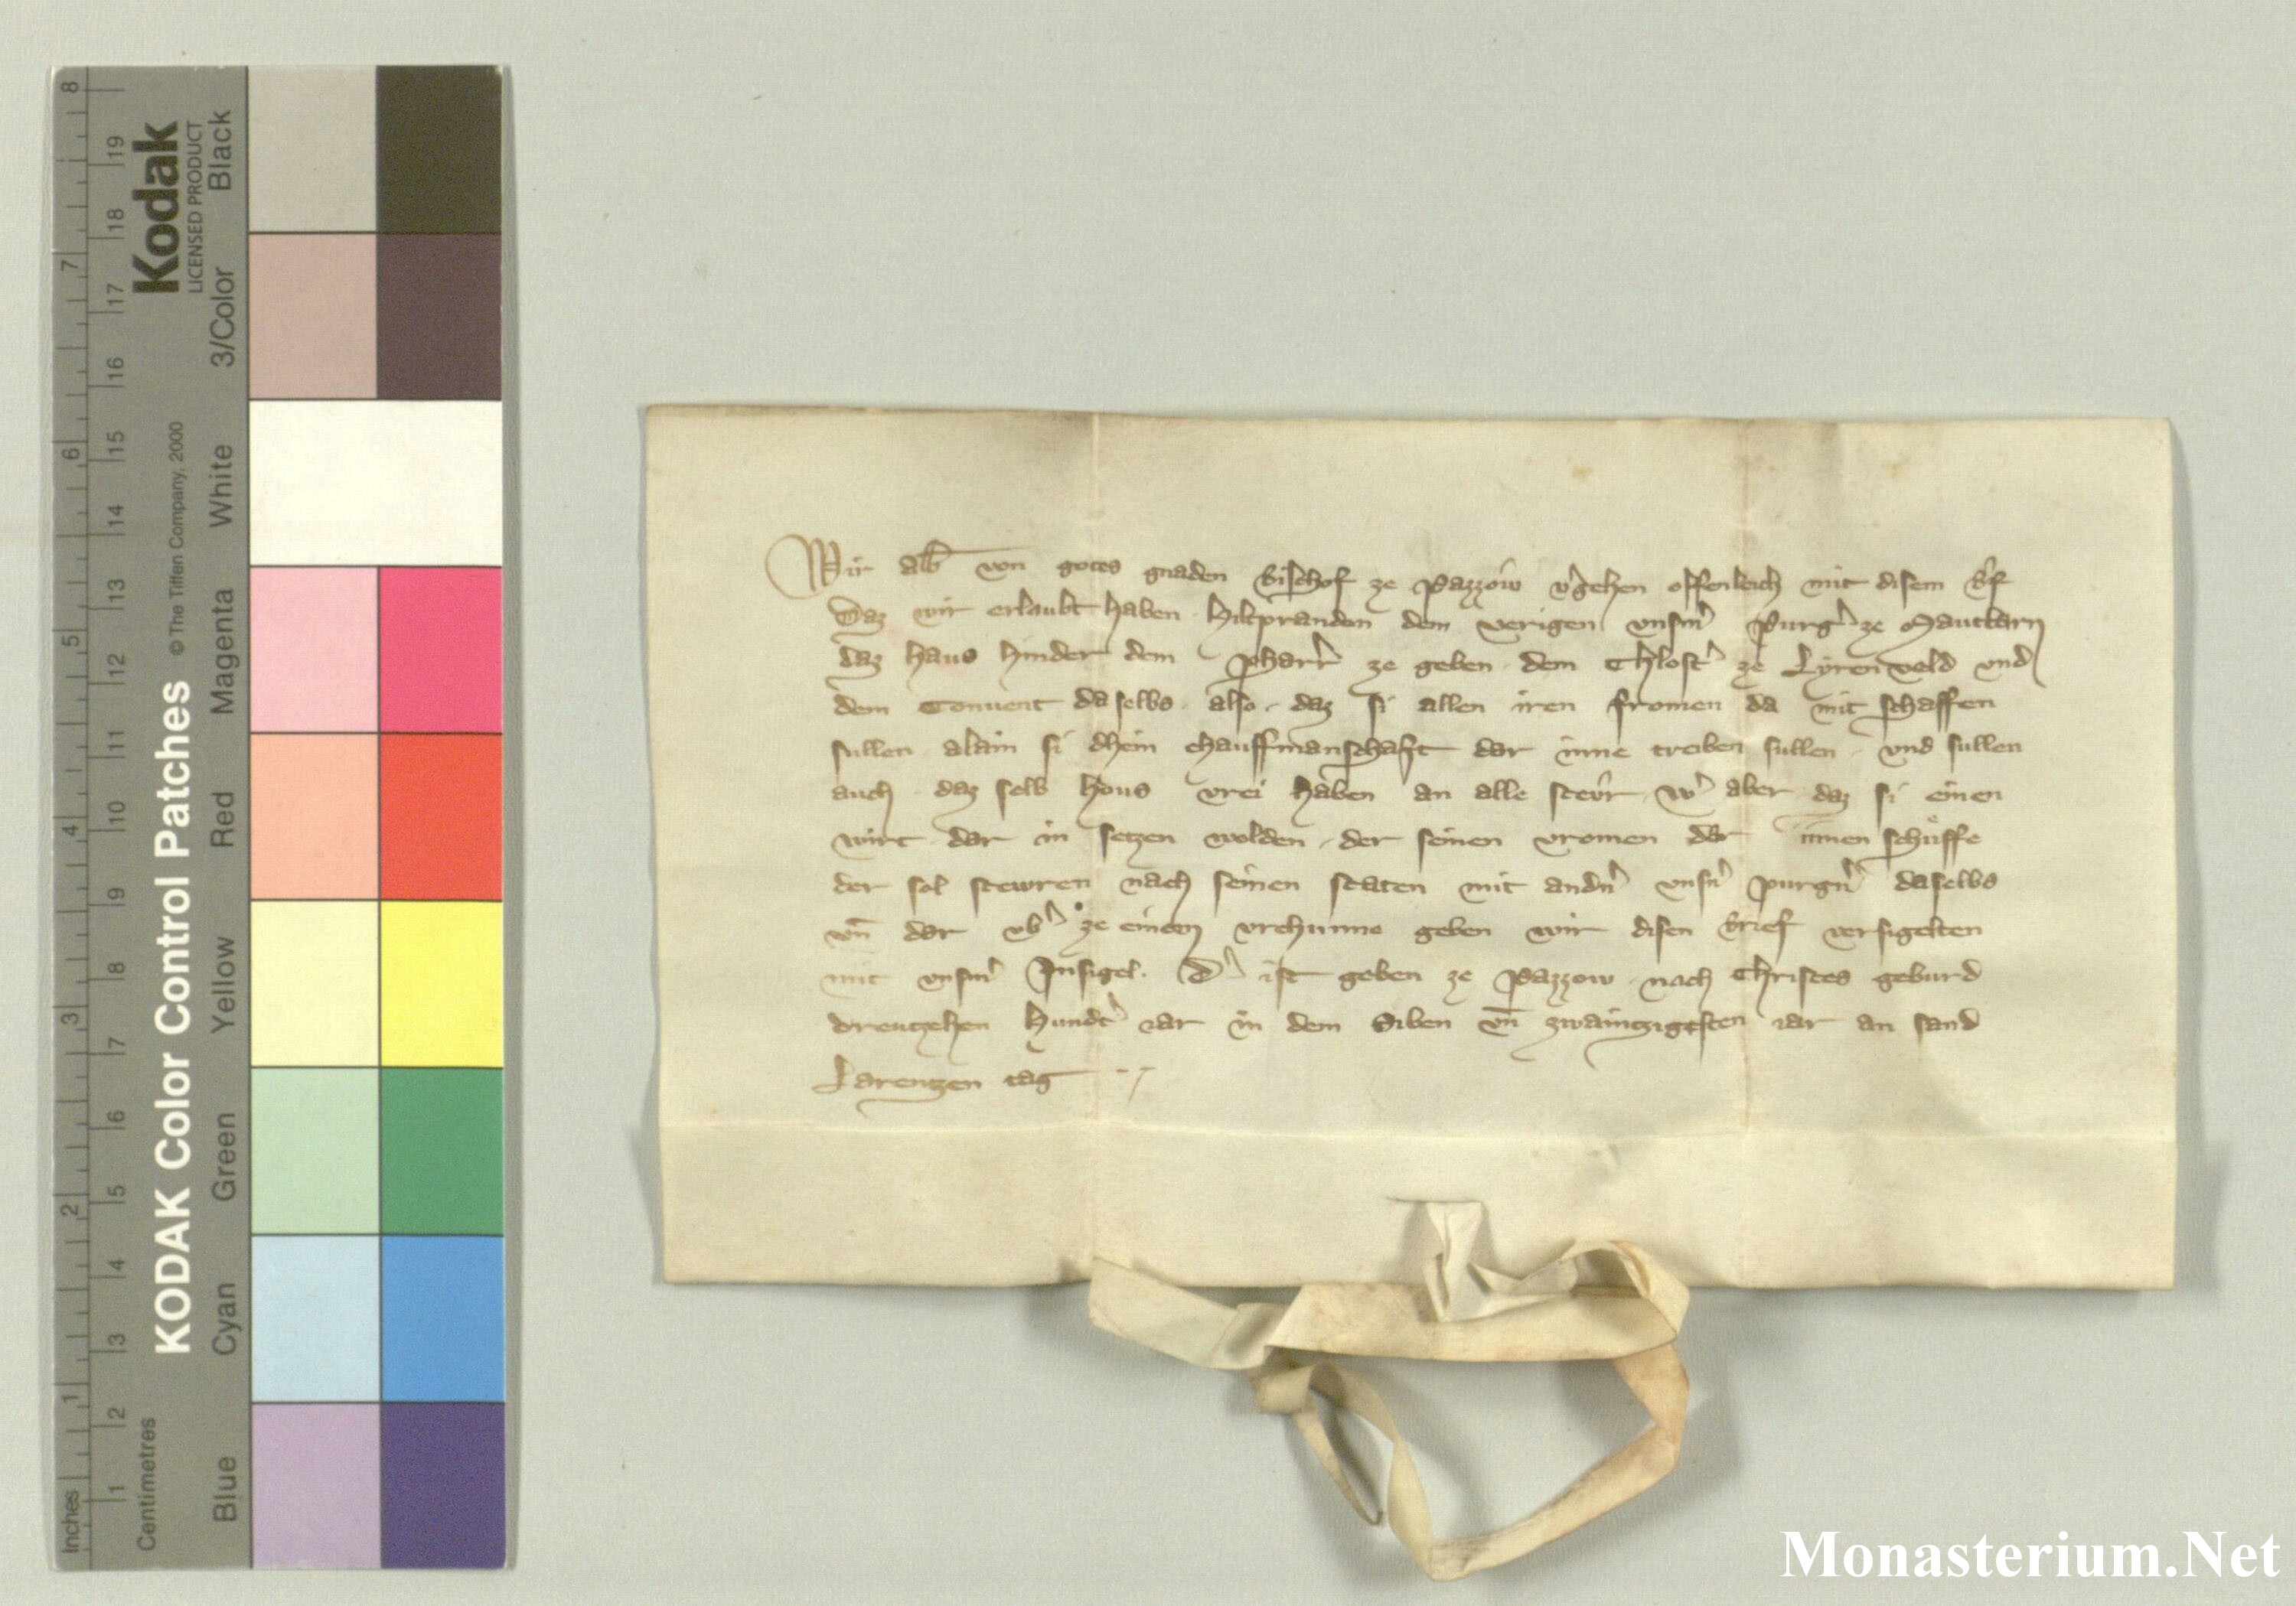 KODAK Color Control Patches
Kodak
LICENSED PRODUCT
© The Tiffen Company, 2000
Inches 1 2 3 4 5 6 7 8
Centimetres 1 2 3 4 5 6 7 8 9 10 11 12 13 14 15 16 17 18 19
Blue Cyan Green Yellow Red Magenta White 3/Color Black
Wir alb von gotes gnaden Bischof ze Pazzow v'gehen offenleich mit disem b'f
Daz wir erlaubt haben Hiltpranden dem verigen vnsm' purg' ze Mauttarn
daz haus hinder dem pharr' ze geben dem Chlost' ze Lyrenveld vnd
dem Conuent daselbs also daz si allen iren fromen da mit schaffen
sullen alain si dhein chauffmanschaft dar inne treiben sullen vnd sullen
auch daz selb hous vrei haben an alle stewr w' aber daz si einen
wirt dar in setzen wolden der seinen vromen dar innen schuͤffe
der sol stewren nach seinen staten mit andn' vnsn' purgn' daselbs
vn̄ dar vb' ze einem vrchunne geben wir disen brief versigelten
mit vnsm' Insigel. D' ist geben ze Pazzow nach Christes geburd
dreutzehen hundt' iar in dem Siben vn̄ zwaintzigisten iar an sand
Larentzen tag
Monasterium.Net